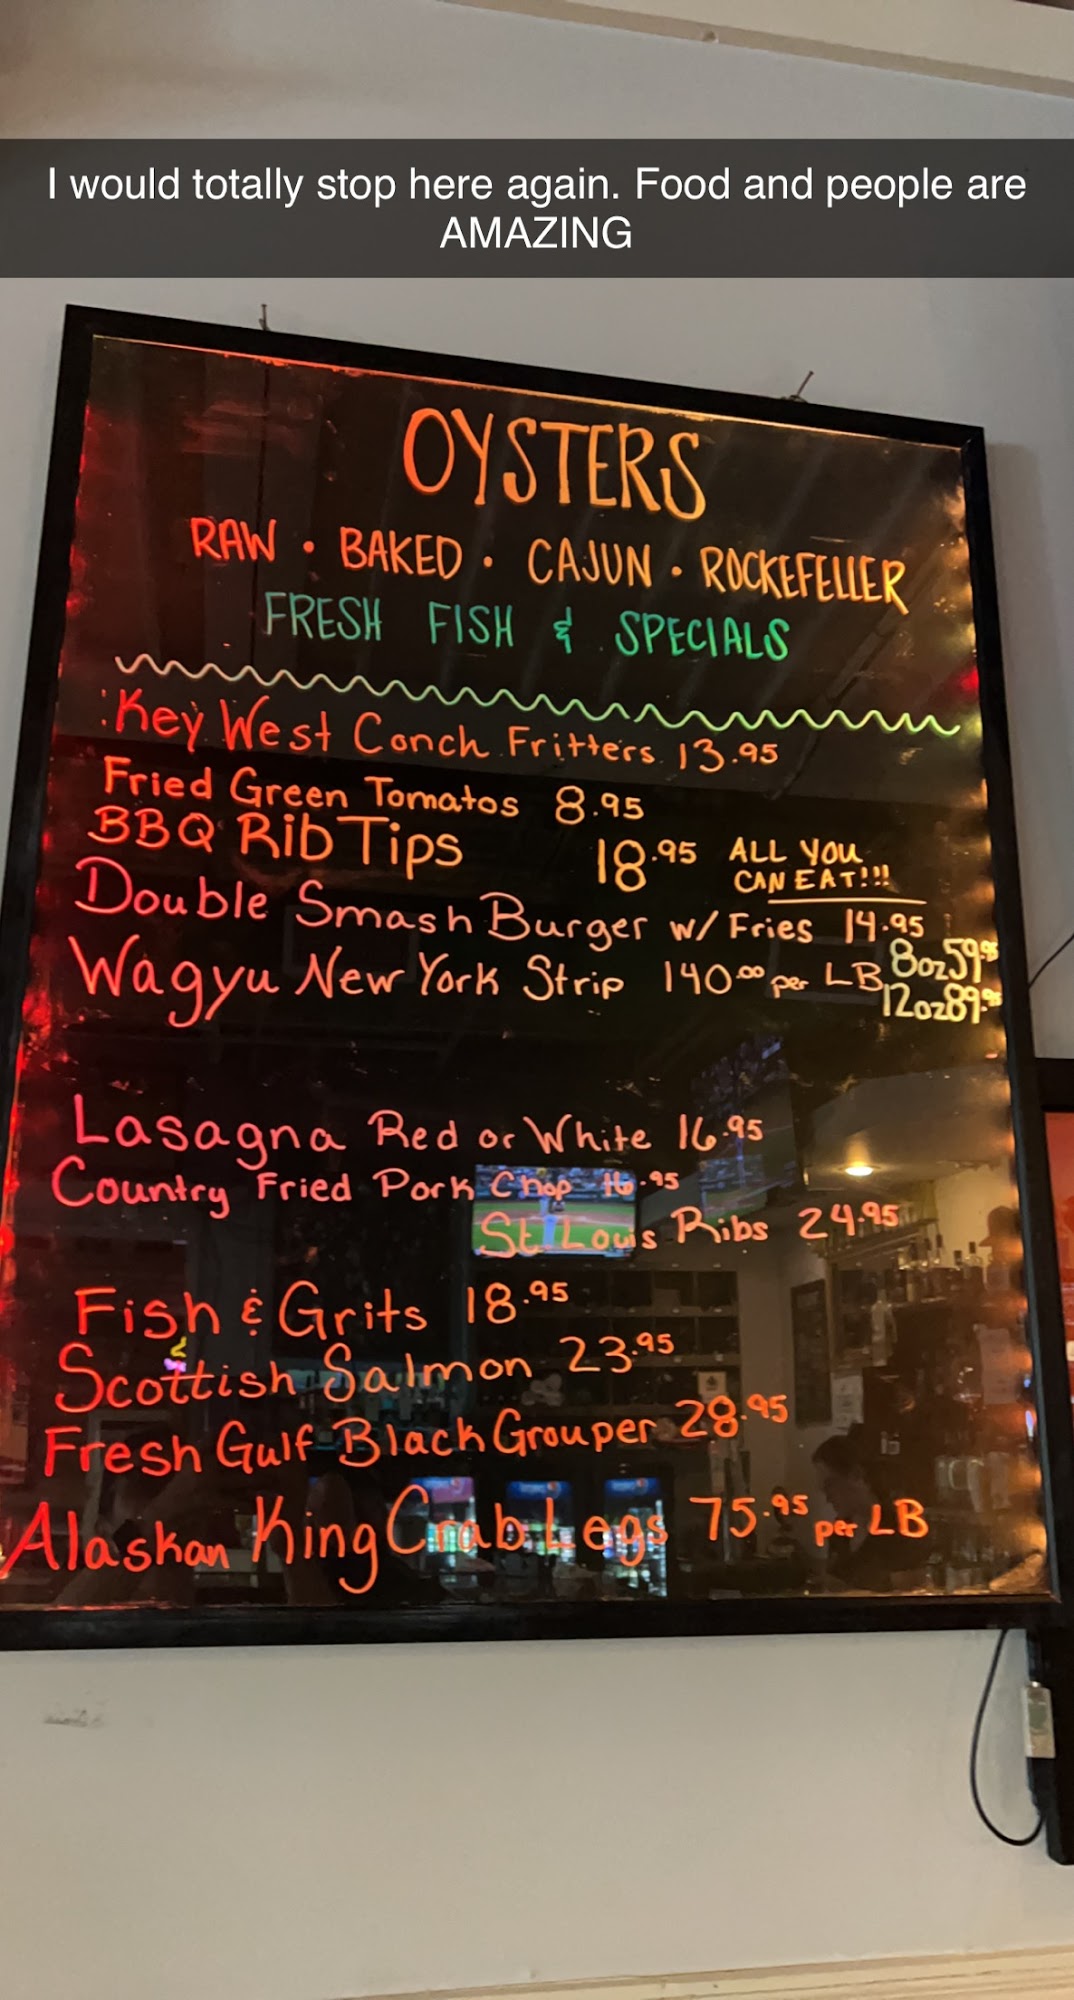 I would totally stop here again. Food and people are
AMAZING
OYSTERS
RAW • BAKED • CAJUN • ROCKEFELLER
FRESH FISH & SPECIALS
Key West Conch Fritters 13.95
Fried Green Tomatos 8.95
BBQ Rib Tips 18.95 ALL YOU
CAN EAT!!!
Double Smash Burger w/ Fries 14.95
Wagyu New York Strip 140.00 per LB 8oz 59.95
12oz 89.95
Lasagna Red or White 16.95
Country Fried Pork Chop 16.95
St. Louis Ribs 24.95
Fish & Grits 18.95
Scottish Salmon 23.95
Fresh Gulf Black Grouper 28.95
Alaskan King Crab Legs 75.95 per LB